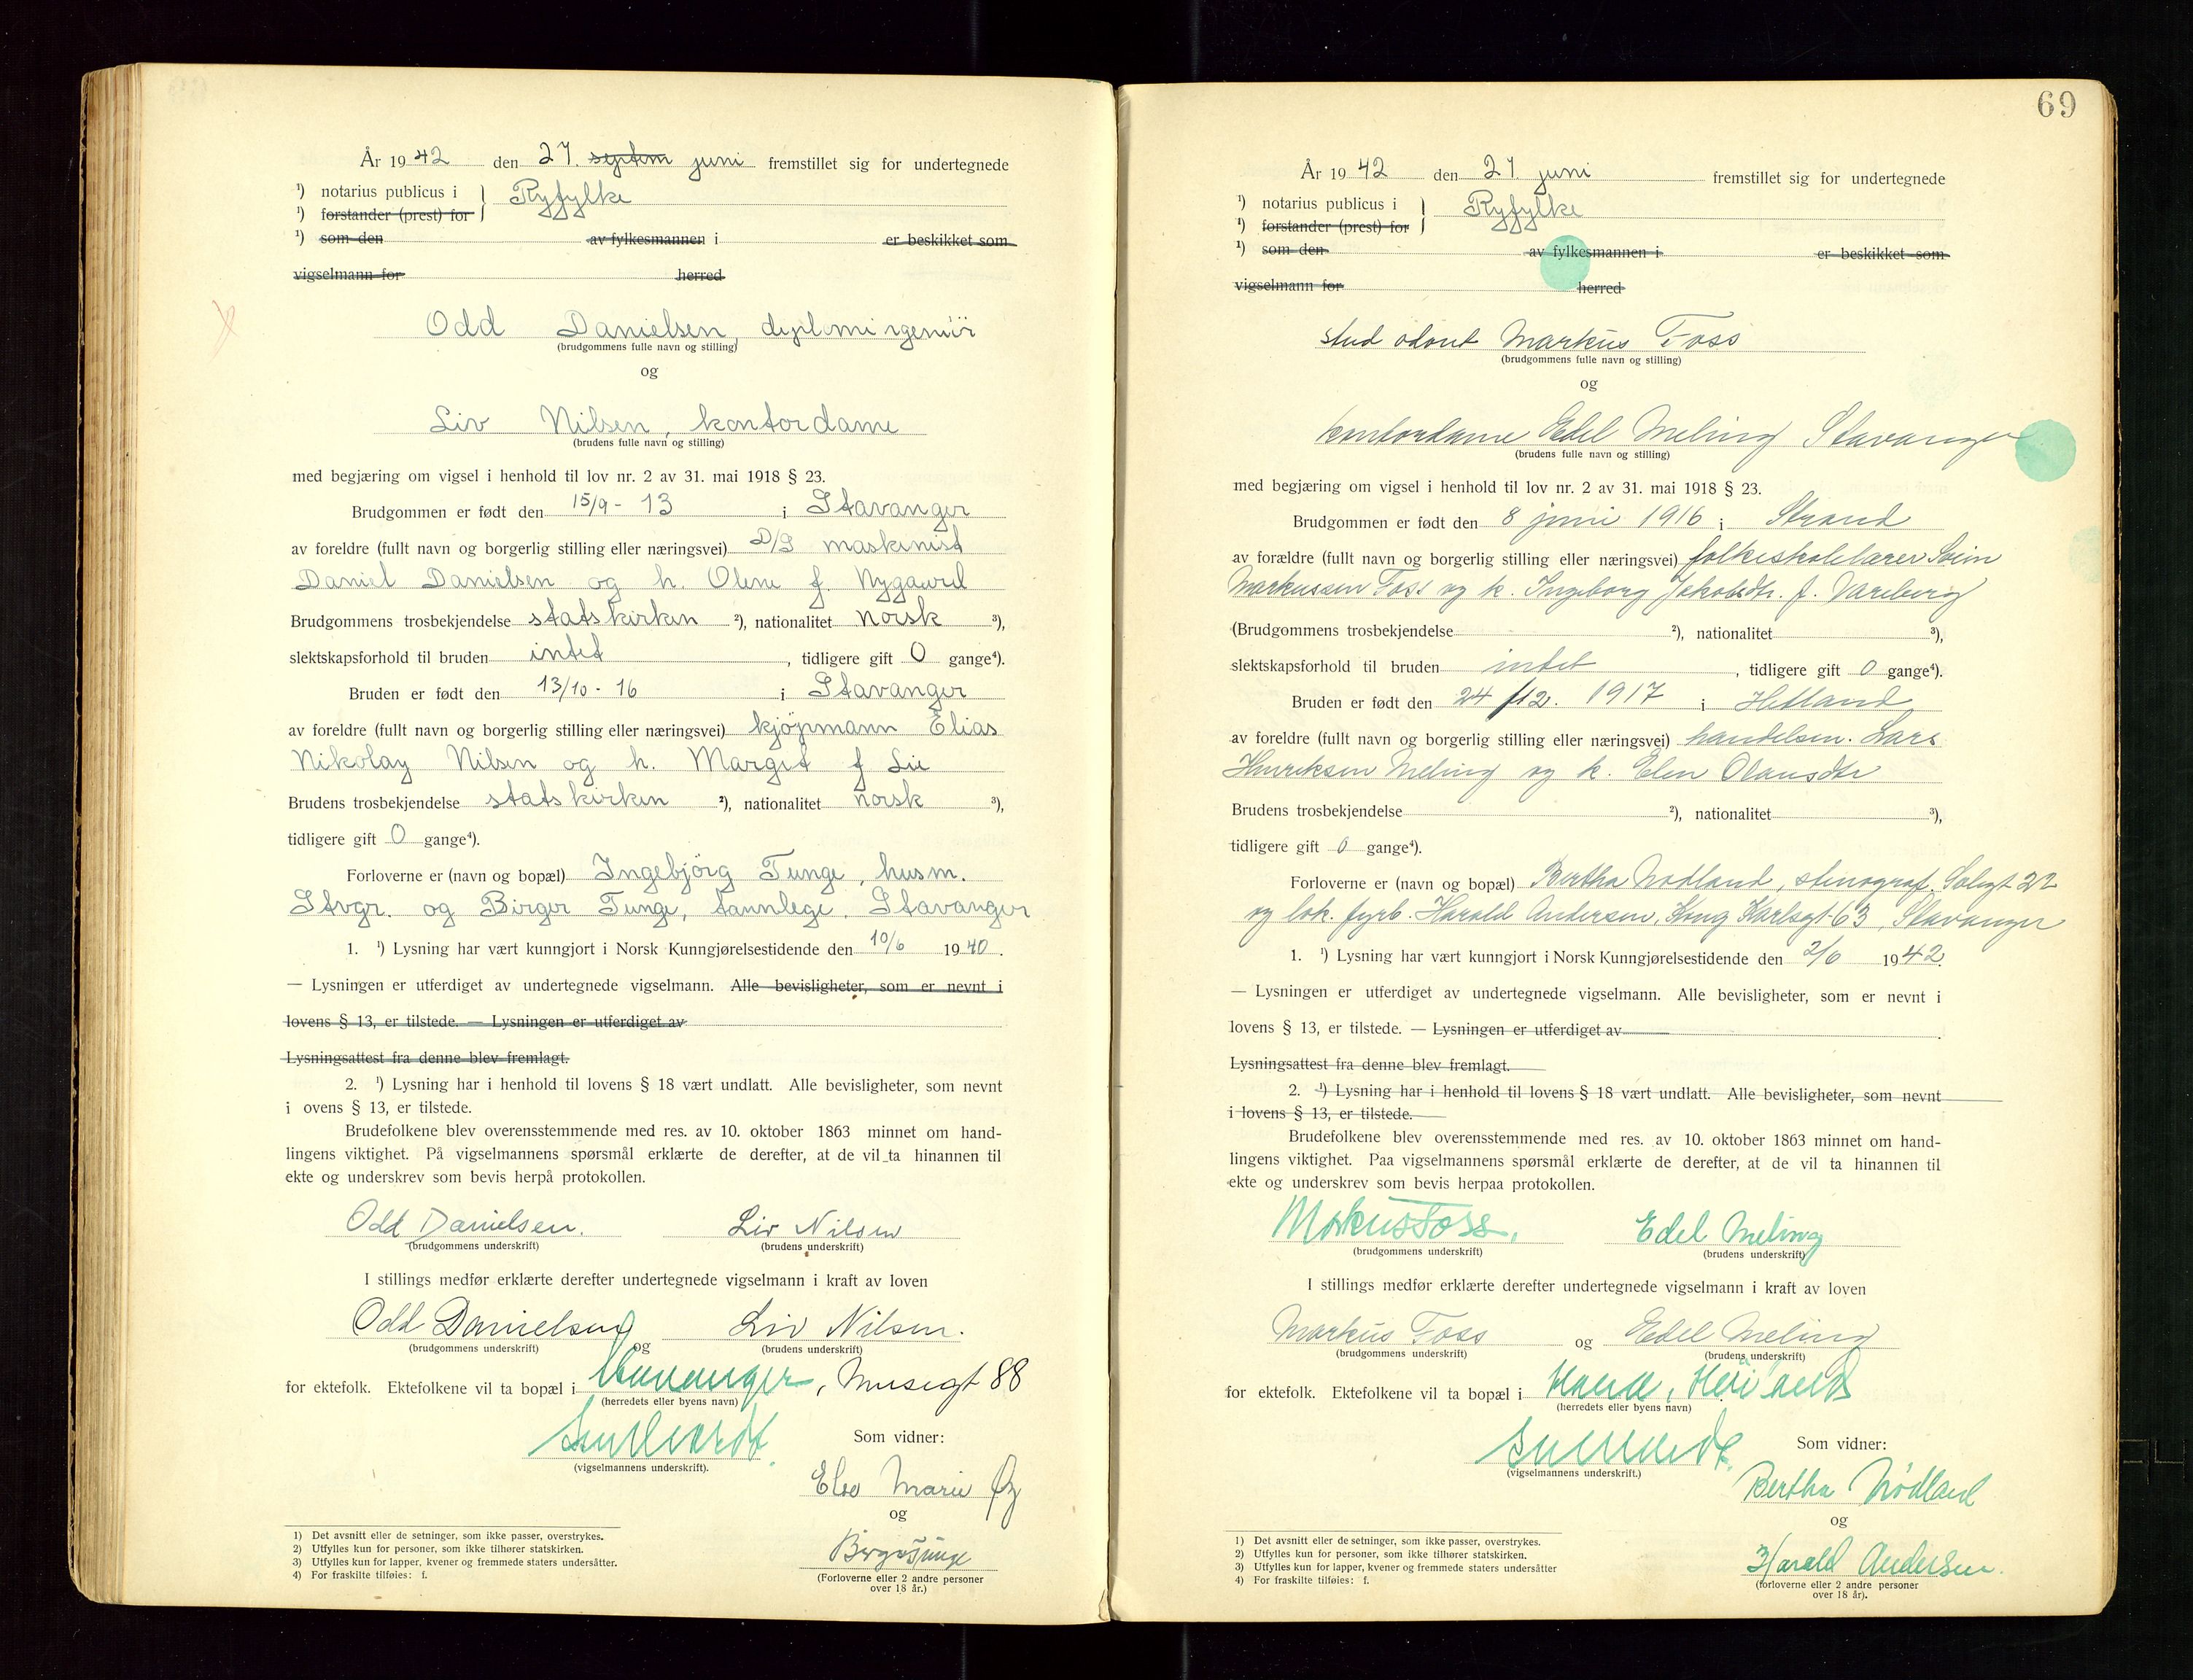 År 19 42 den 27. septem juni fremstillet sig for undertegnede
¹) notarius publicus i } Ryfylke
¹) forstander (prest) for
¹) som den av fylkesmannen i er beskikket som
vigselmann for herred
Odd Danielsen, diplomingeniör
(brudgommens fulle navn og stilling)
og
Liv Nilsen, kontordame
(brudens fulle navn og stilling)
med begjæring om vigsel i henhold til lov nr. 2 av 31. mai 1918 § 23.
Brudgommen er født den 15/9 - 13 i Stavanger
av foreldre (fullt navn og borgerlig stilling eller næringsvei) D/S maskinist
Daniel Danielsen og h. Olene f. Nygaard
Brudgommens trosbekjendelse statskirken ²), nationalitet norsk ³),
slektskapsforhold til bruden intet, tidligere gift 0 gange⁴).
Bruden er født den 13/10 - 16 i Stavanger
av foreldre (fullt navn og borgerlig stilling eller næringsvei) kjöpmann Elias
Nikolay Nilsen og h. Margit f Lie
Brudens trosbekjendelse statskirken ²), nationalitet norsk ³),
tidligere gift 0 gange⁴).
Forloverne er (navn og bopæl) Ingebjörg Tunge, husm.
Stvgr. og Birger Tunge, tannlege, Stavanger
1. ¹) Lysning har vært kunngjort i Norsk Kunngjørelsestidende den 10/6 19 40.
— Lysningen er utferdiget av undertegnede vigselmann. Alle bevisligheter, som er nevnt i
lovens § 13, er tilstede. — Lysningen er utferdiget av
Lysningsattest fra denne blev fremlagt.
2. ¹) Lysning har i henhold til lovens § 18 vært undlatt. Alle bevisligheter, som nevnt
i ovens § 13, er tilstede.
Brudefolkene blev overensstemmende med res. av 10. oktober 1863 minnet om hand-
lingens viktighet. På vigselmannens spørsmål erklærte de derefter, at de vil ta hinannen til
ekte og underskrev som bevis herpå protokollen.
Odd Danielsen. Liv Nilsen
(brudgommens underskrift) (brudens underskrift)
I stillings medfør erklærte derefter undertegnede vigselmann i kraft av loven
Odd Danielsen og Liv Nilsen.
(brudgommens underskrift) (brudens underskrift)
for ektefolk. Ektefolkene vil ta bopæl i Stavanger, Musegt 88
(herredets eller byens navn)
Som vidner:
(vigselmannens underskrift).
Else Marie
og
Birger Tunge
(Forloverne eller 2 andre personer
over 18 år.)
1) Det avsnitt eller de setninger, som ikke passer, overstrykes.
2) Utfylles kun for personer, som ikke tilhører statskirken.
3) Utfylles kun for lapper, kvener og fremmede staters undersåtter.
4) For fraskilte tilføies: f.
69
År 19 42 den 27. juni fremstillet sig for undertegnede
¹) notarius publicus i } Ryfylke
¹) forstander (prest) for
¹) som den av fylkesmannen i er beskikket som
vigselmann for herred
stud odont Markus Foss
(brudgommens fulle navn og stilling)
og
kontordame Edel Meling Stavanger
(brudens fulle navn og stilling)
med begjæring om vigsel i henhold til lov nr. 2 av 31. mai 1918 § 23.
Brudgommen er født den 8 juni 1916 i Strand
av forældre (fullt navn og borgerlig stilling eller næringsvei) folkeskolelærer Svein
Markussen Foss og h. Ingeborg Jakobsdtr. f. Vareberg
(Brudgommens trosbekjendelse ²), nationalitet ³),
slektskapsforhold til bruden intet, tidligere gift 0 gange⁴).
Bruden er født den 24/12. 1917 i Hetland
av foreldre (fullt navn og borgerlig stilling eller næringsvei) handelsm. Lars
Henriksen Meling og h. Elen Olausdtr
Brudens trosbekjendelse ²), nationalitet ³),
tidligere gift 0 gange⁴).
Forloverne er (navn og bopæl) Bertha Nødland, stenograf, Solvgt 22
og lok. fyrb. Harald Andersen, Kong Karlsgt 63, Stavanger
1. ¹) Lysning har vært kunngjort i Norsk Kunngjørelsestidende den 2/6 19 42.
— Lysningen er utferdiget av undertegnede vigselmann. Alle bevisligheter, som er nevnt i
lovens § 13, er tilstede. — Lysningen er utferdiget av
Lysningsattest fra denne blev fremlagt.
2. ¹) Lysning har i henhold til lovens § 18 vært undlatt. Alle bevisligheter, som nevnt
i lovens § 13, er tilstede.
Brudefolkene blev overensstemmende med res. av 10. oktober 1863 minnet om hand-
lingens viktighet. Paa vigselmannens spørsmål erklærte de derefter, at de vil ta hinannen til
ekte og underskrev som bevis herpaa protokollen.
Markus Foss. Edel Meling
(brudgommens underskrift) (brudens underskrift)
I stillings medfør erklærte derefter undertegnede vigselmann i kraft av loven
Markus Foss og Edel Meling
(brudgommens underskrift) (brudens underskrift)
for ektefolk. Ektefolkene vil ta bopæl i
(herredets eller byens navn)
Som vidner:
(vigselmannens underskrift.)
Bertha Nödland
og
Harald Andersen.
(forloverne eller 2 andre personer
over 18 år).
1) Det avsnitt eller de setninger, som ikke passer, overstrykes.
2) Utfylles kun for personer, som ikke tilhører statskirken.
3) Utfylles kun for lapper, kvener og fremmede staters undersåtter
4) For fraskilte tilføies: f.